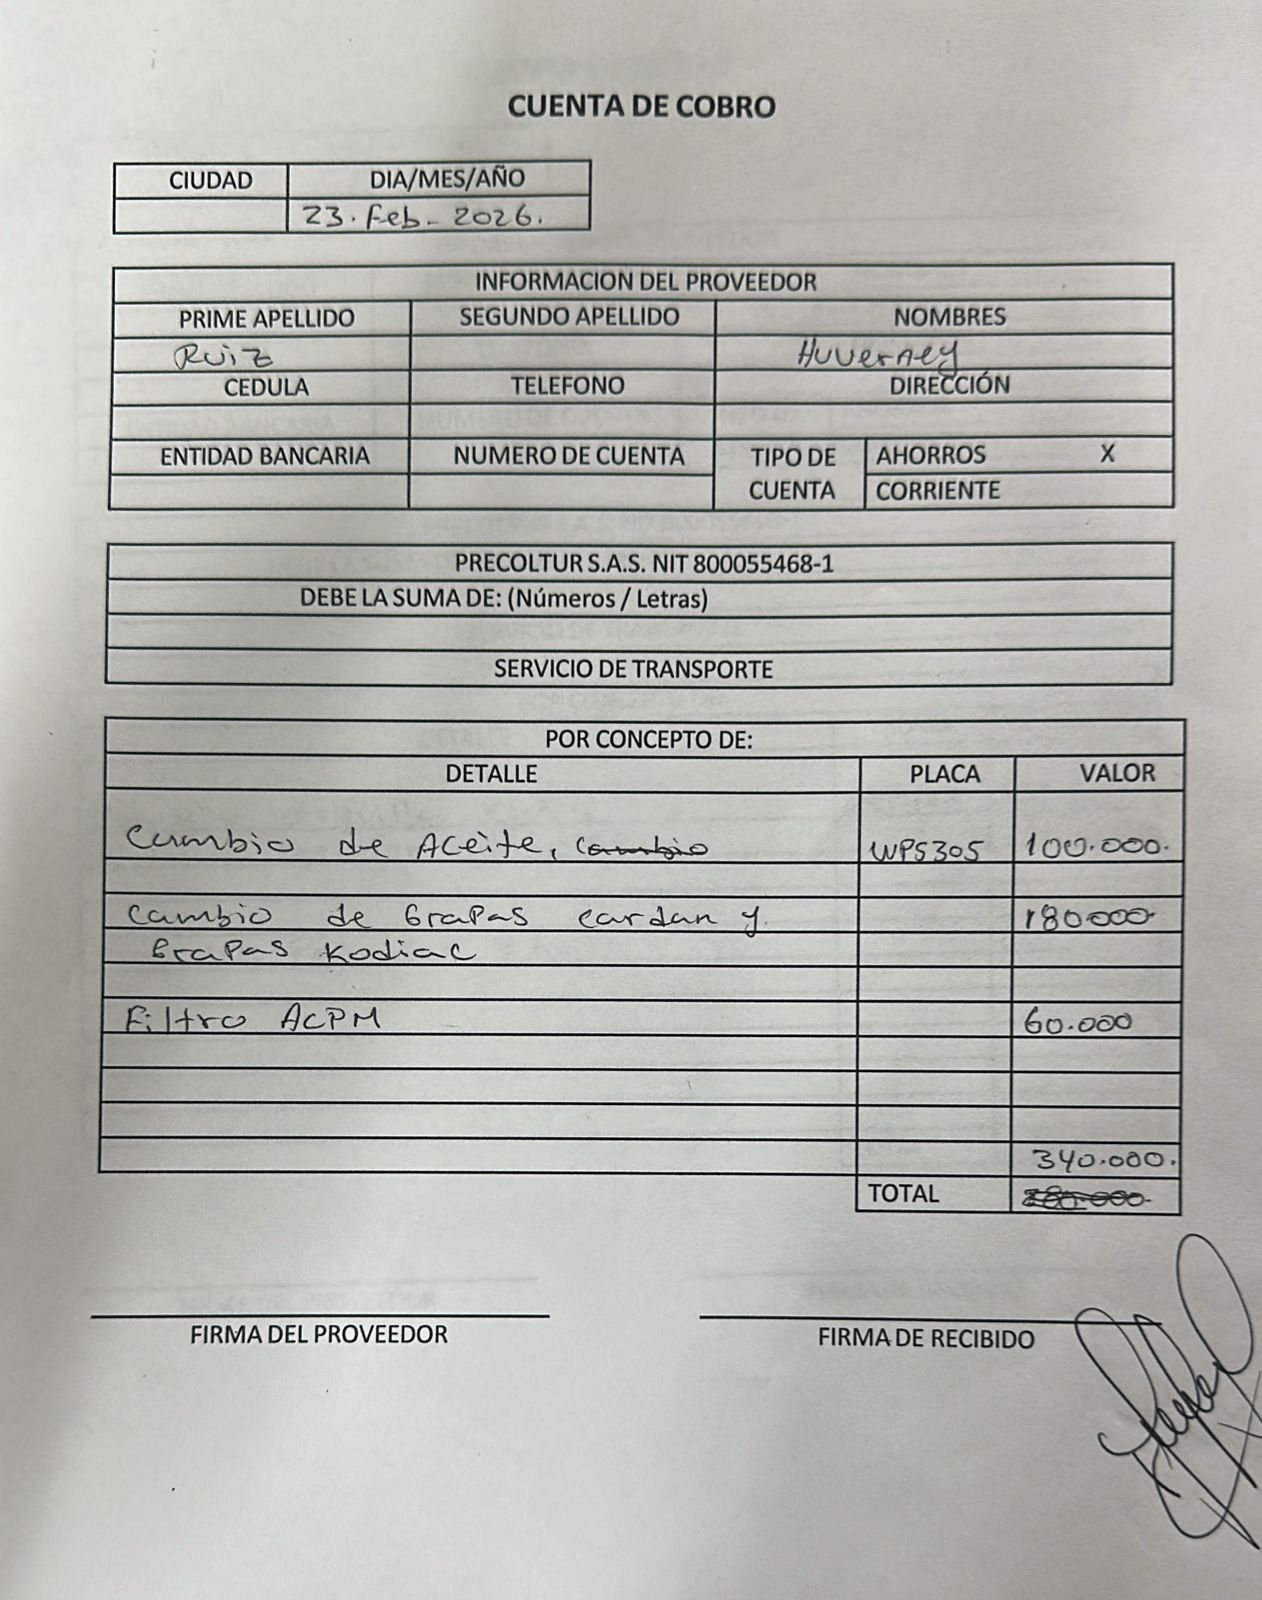 CUENTA DE COBRO
CIUDAD DIA/MES/AÑO
23. Feb- 2026.
INFORMACION DEL PROVEEDOR
PRIME APELLIDO SEGUNDO APELLIDO NOMBRES
Ruiz Huverney
CEDULA TELEFONO DIRECCIÓN
ENTIDAD BANCARIA NUMERO DE CUENTA TIPO DE CUENTA AHORROS X
CORRIENTE
PRECOLTUR S.A.S. NIT 800055468-1
DEBE LA SUMA DE: (Números / Letras)
SERVICIO DE TRANSPORTE
POR CONCEPTO DE:
DETALLE PLACA VALOR
Cambio de Aceite, cambio WPS305 100.000.
Cambio de Grapas cardan y. 180000
Grapas Kodiac
Filtro ACPM 60.000
340.000.
TOTAL 280.000.
FIRMA DEL PROVEEDOR FIRMA DE RECIBIDO